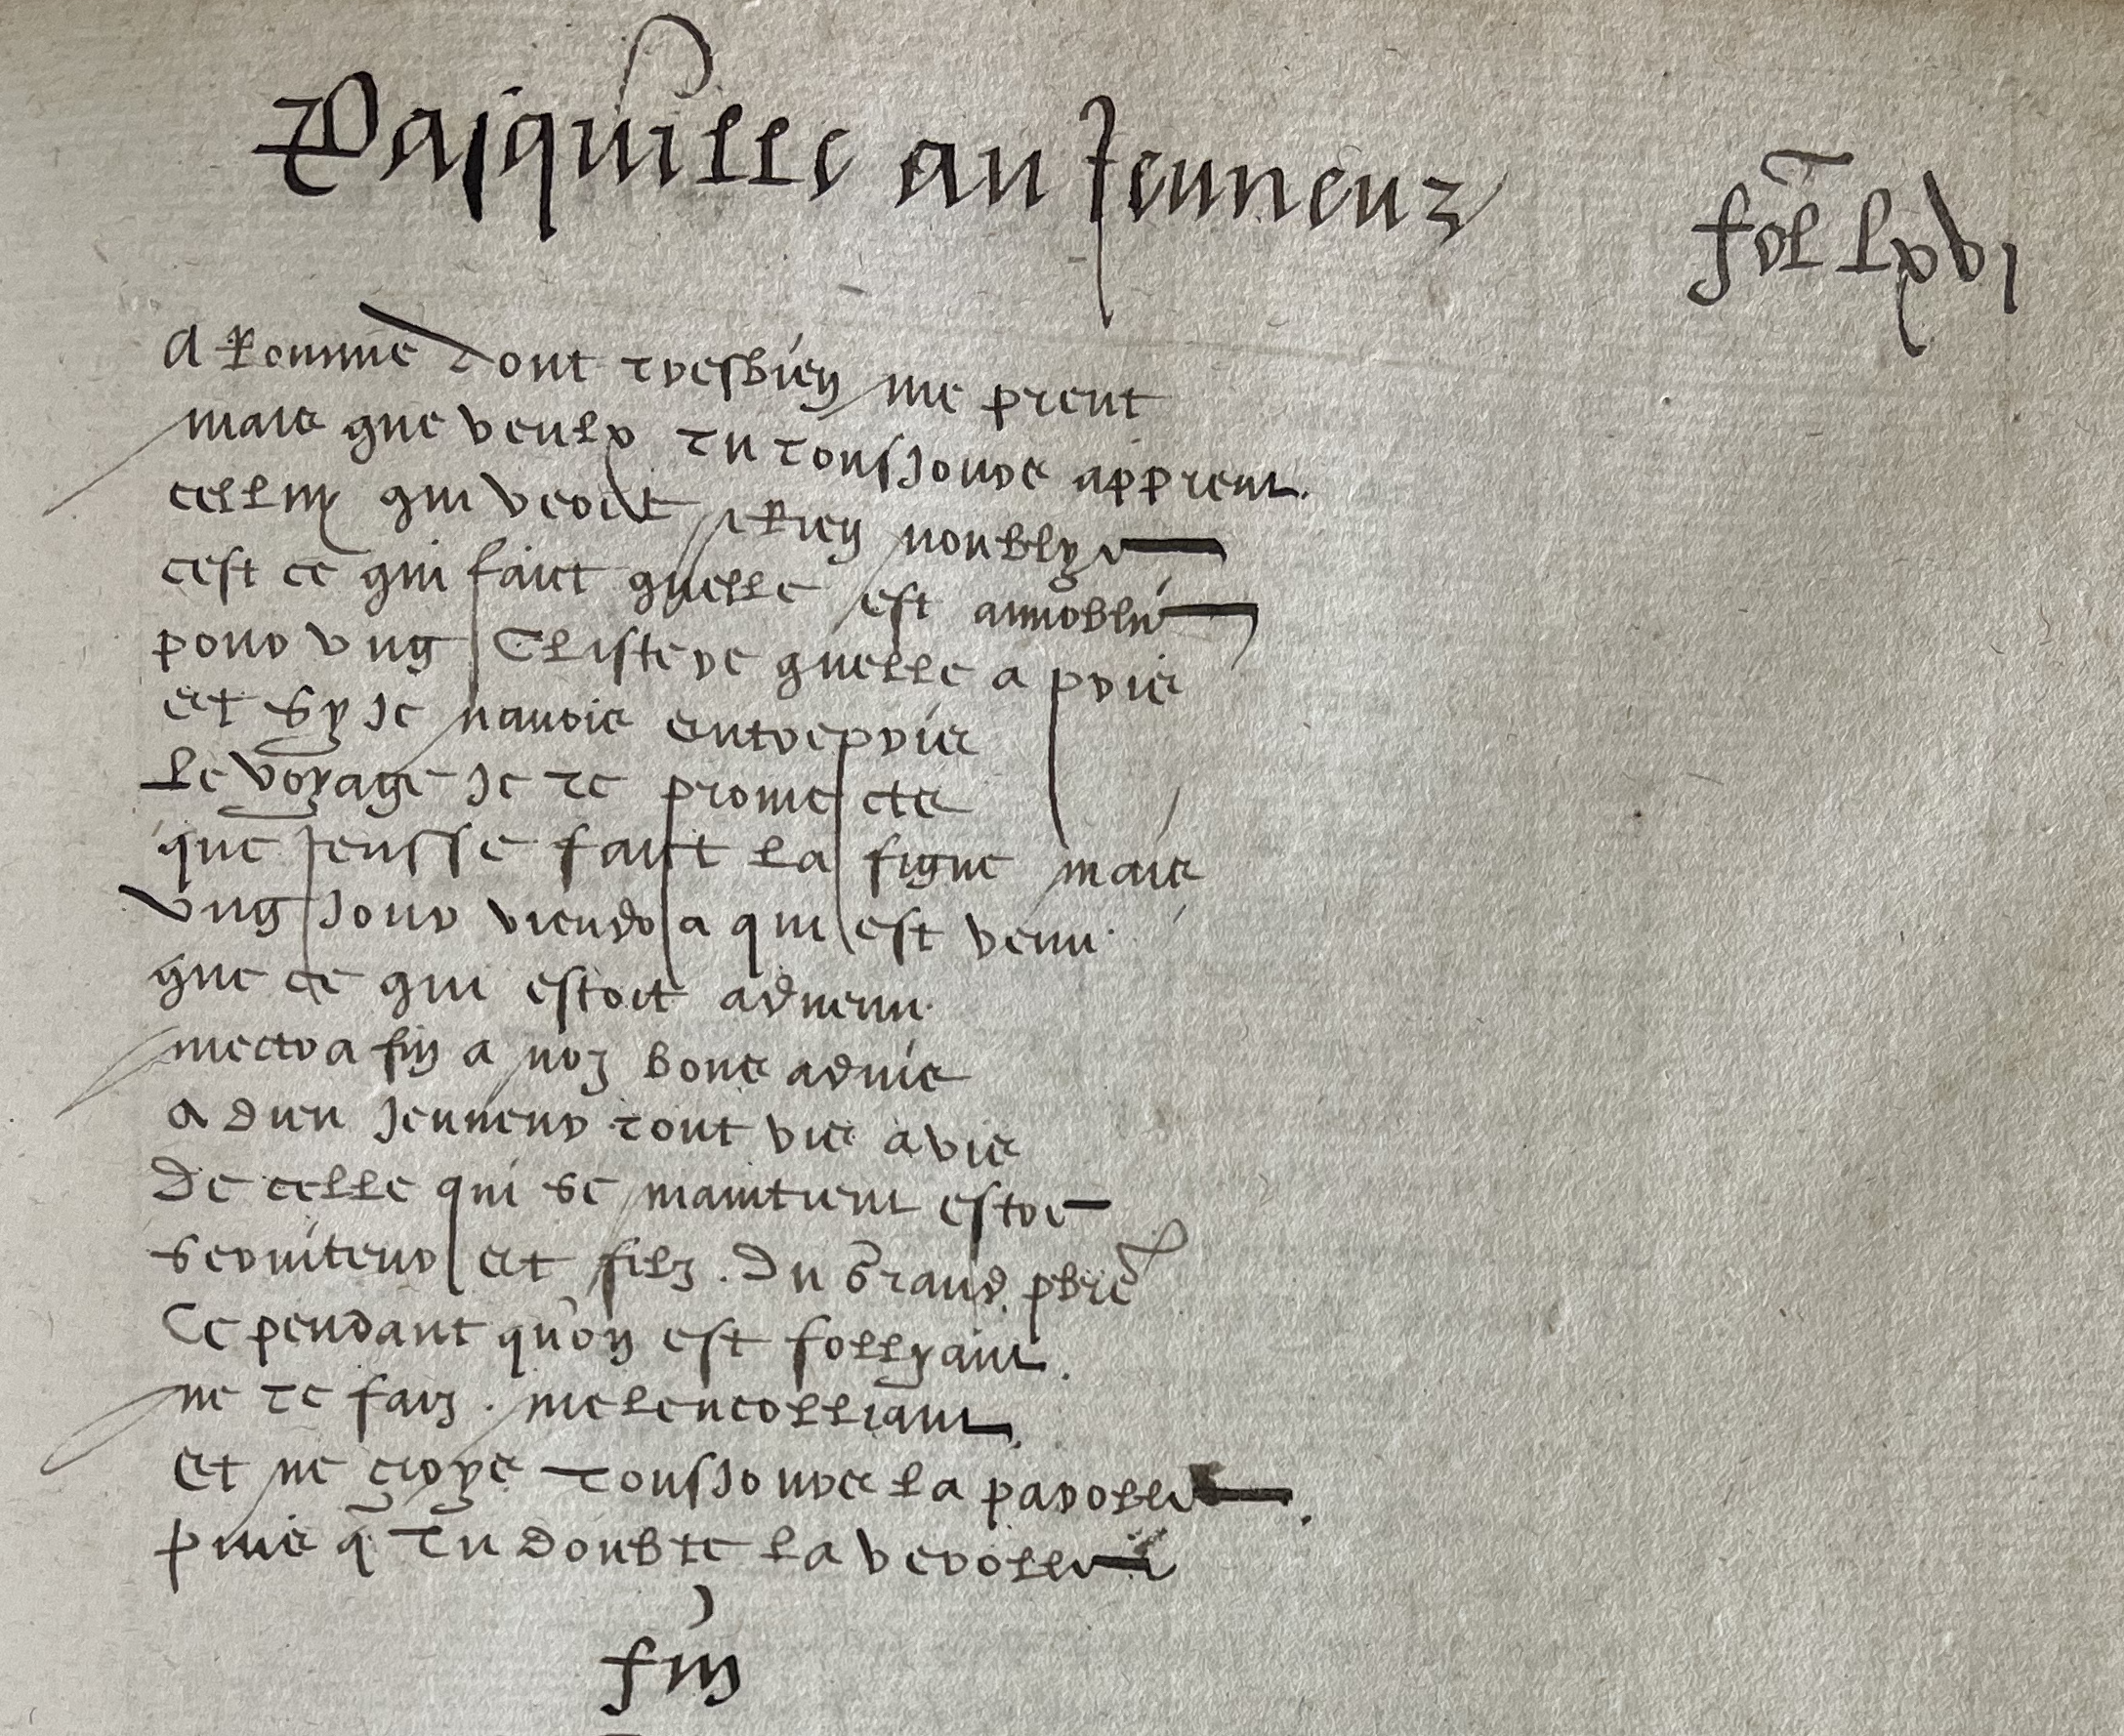 Pasquille au Jenneuz
fol lxvi
A Romme dont tresbien me prent
mais que veulx tu tousjours apprent.
celluy qui veoit & rien noublye
cest ce qui faict quelle est annoblie
pour ung Clistere quelle a pris
et sy je navois entrepris
Le voyage je te promectz
que jeusse faict la figue mais
Ung jour viendra qui est venu
que ce qui estoit advenu
mectra fin a noz bons advis
a dieu Jenneur tout vis a vis
De celle qui se maintient estre
serviteur et filz. du Grand pbre
Ce pendant quon est follyant.
ne te faiz. melencolliant.
et ne croys tousjours la parolle.
puis q tu doubte la verolle
fin